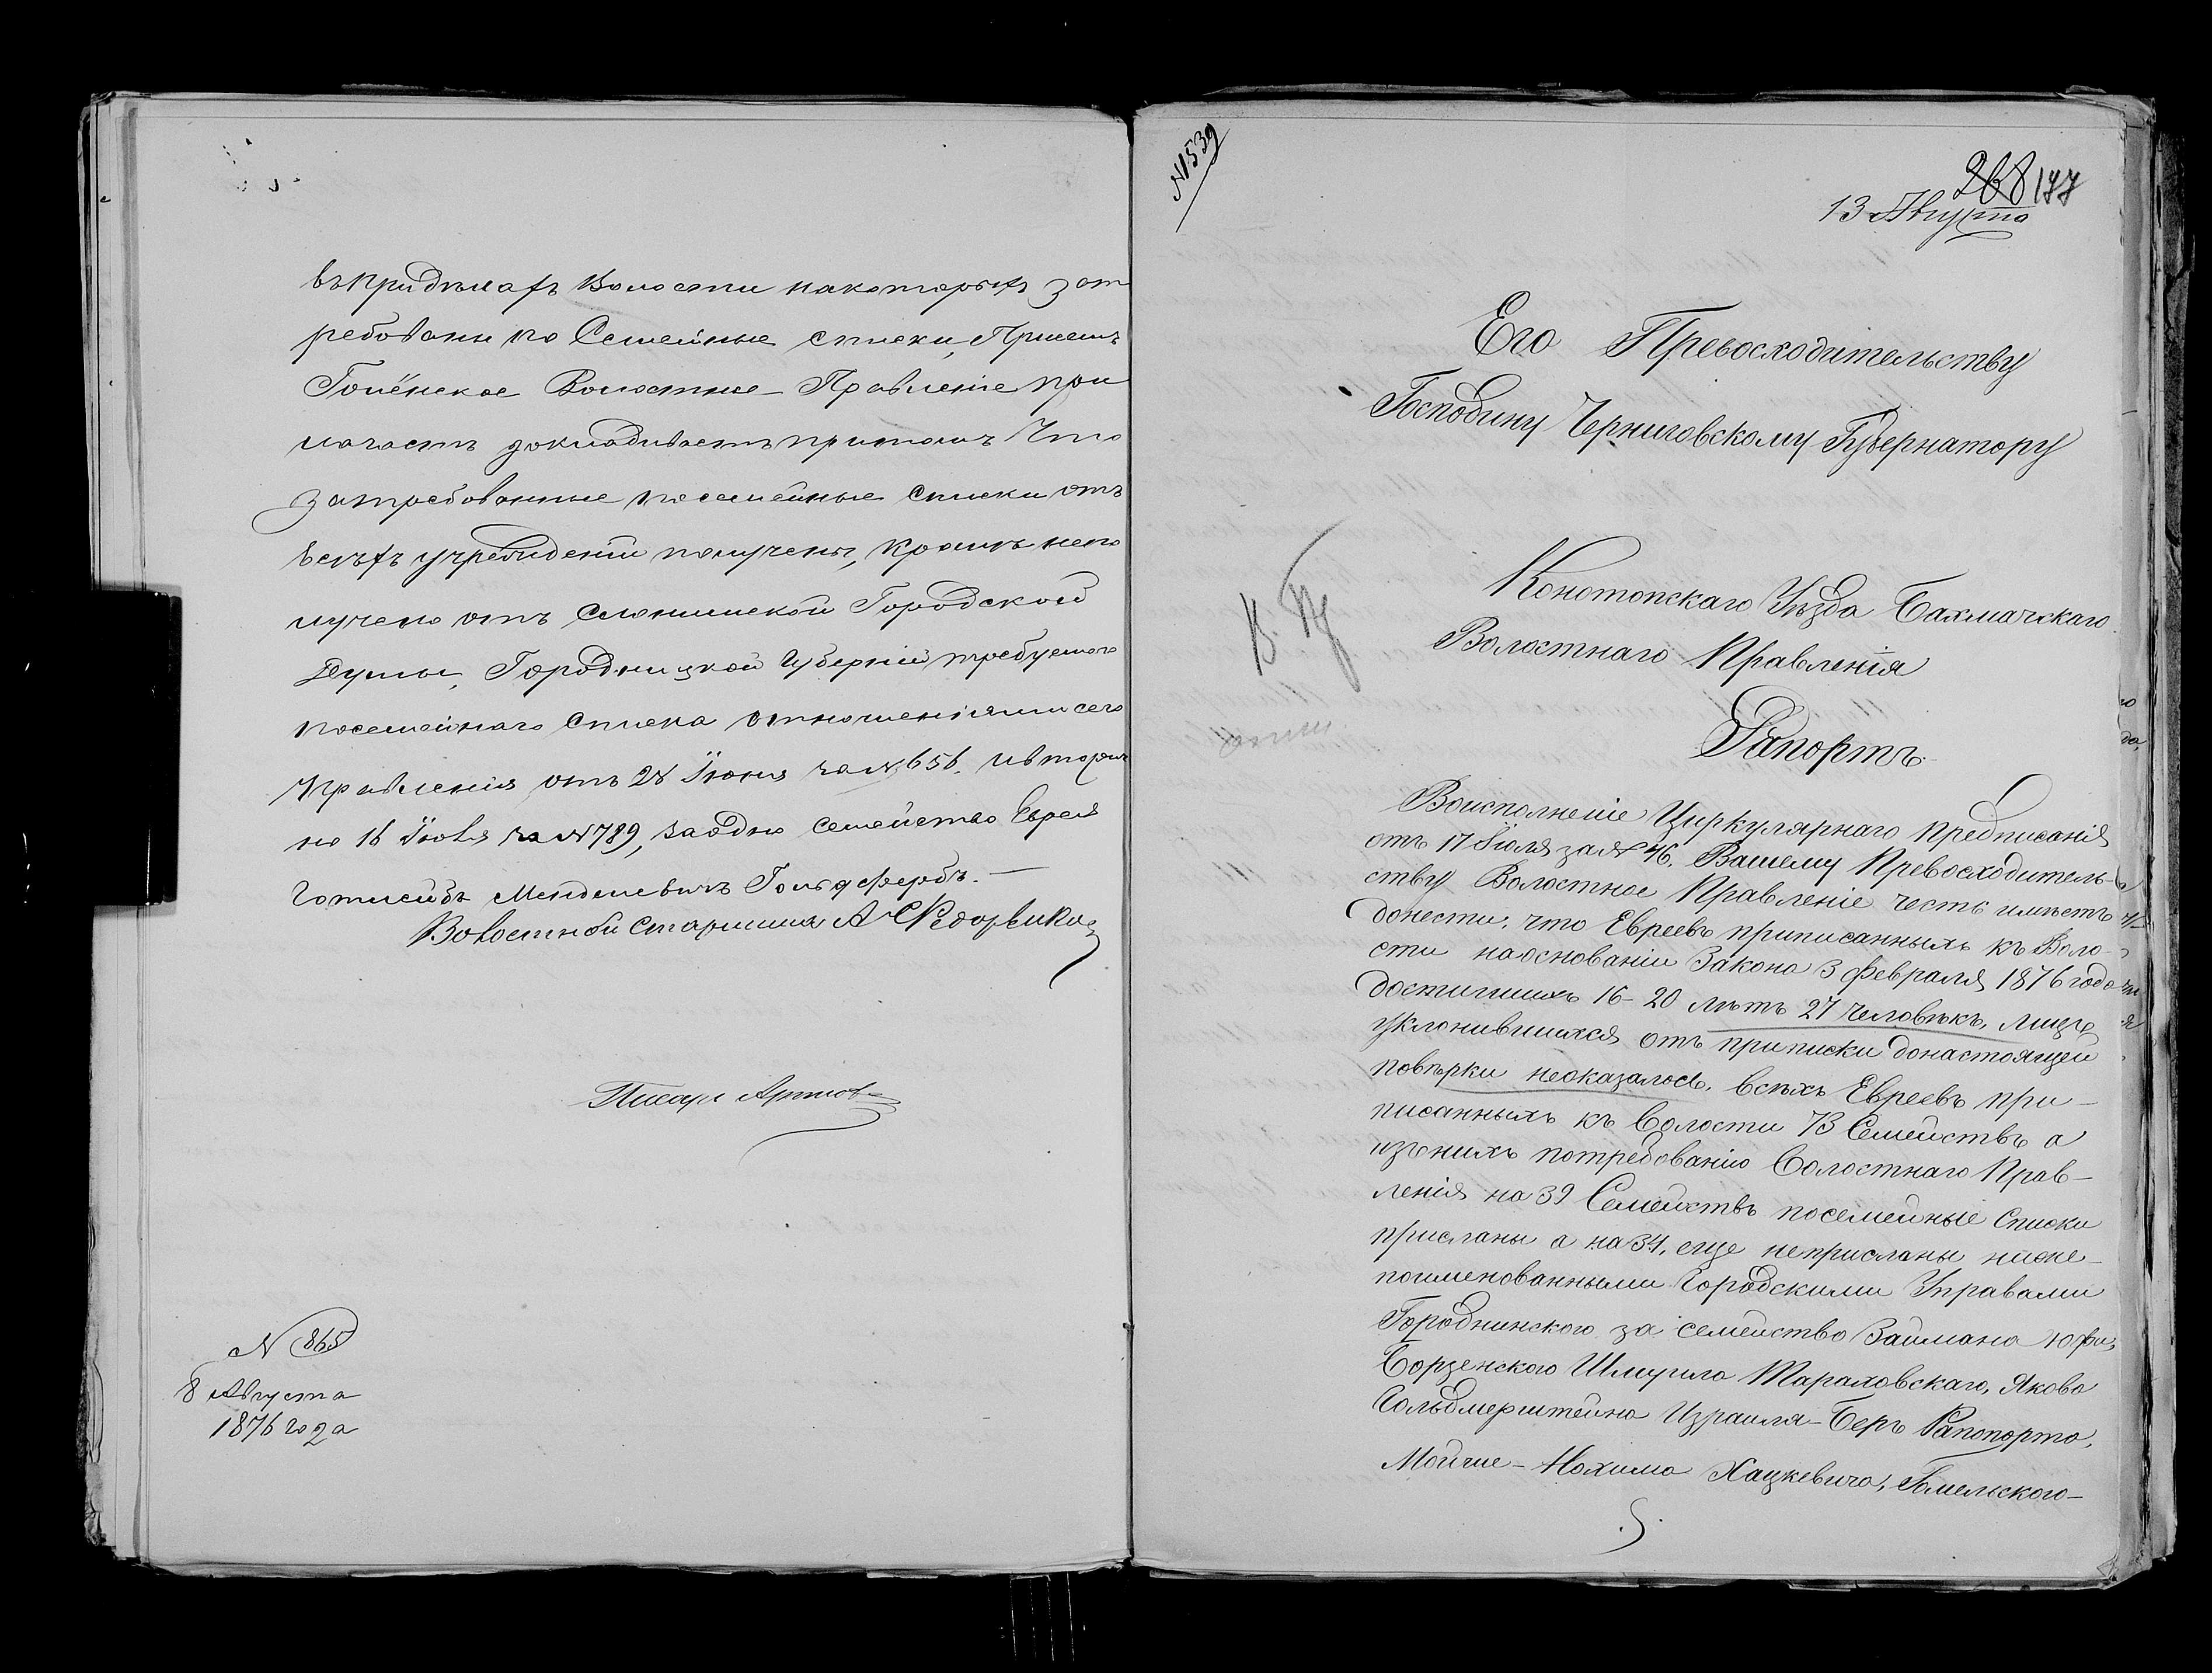 въ придѣлахъ Волости накоторыхъ зат
ребованы по Семейные списки, При семъ
Волостное Правленіе при
докладиваетъ притомъ Что
затребованные посемейные Списки отъ
всѣхъ учреждений получены, кромѣ непо
лучено отъ Слонимской Городской
Думы, Городницкой Губерніи требуемаго
посемейнаго Списка отношеніями сего
Правленія отъ 28 Іюня за № 656. и втори
но 16 Іюля за № 789, заодно Семейство Еврея
Менделевичъ Гольдфербъ. —
Волостной Старшина А Федоренко
Писарь
№ 865
8 Августа
1876 года
№1539
268 177
13 Августа
Его Превосходительству
Господину Черниговскому Губернатору
Конотопскаго Уѣзда Бахмачскаго
Волостнаго Правленія
Рапортъ.
Воисполненіе Циркулярнаго предписанія
отъ 17 Іюля за № 46. Вашему Превосходитель-
ству Волостное Правленіе честь имѣетъ
донести, что Евреевъ приписанныхъ къ Воло-
сти наоснованіи Закона 3 февраля 1876 года
достигшихъ 16-20 лѣтъ 27 человѣкъ, лицъ
уклонившихся отъ приписки донастоящей
повѣрки неоказалось. Всѣхъ Евреевъ при-
писанныхъ къ Волости 73 Семействъ а
изъ нихъ потребованію Волостнаго Прав-
ленія на 39 Семействъ посемейные Списки
присланы а на 34, еще неприсланы ниже-
поименованными Городскими Управами
Городнинского за семейство Займана Юфы,
Борзенского Шмуила Тараховскаго, Якова
Гольдмерштейна Израиля-Беръ Рапопорта,
Мойше-Нохима Хацкевича, Гомельского-